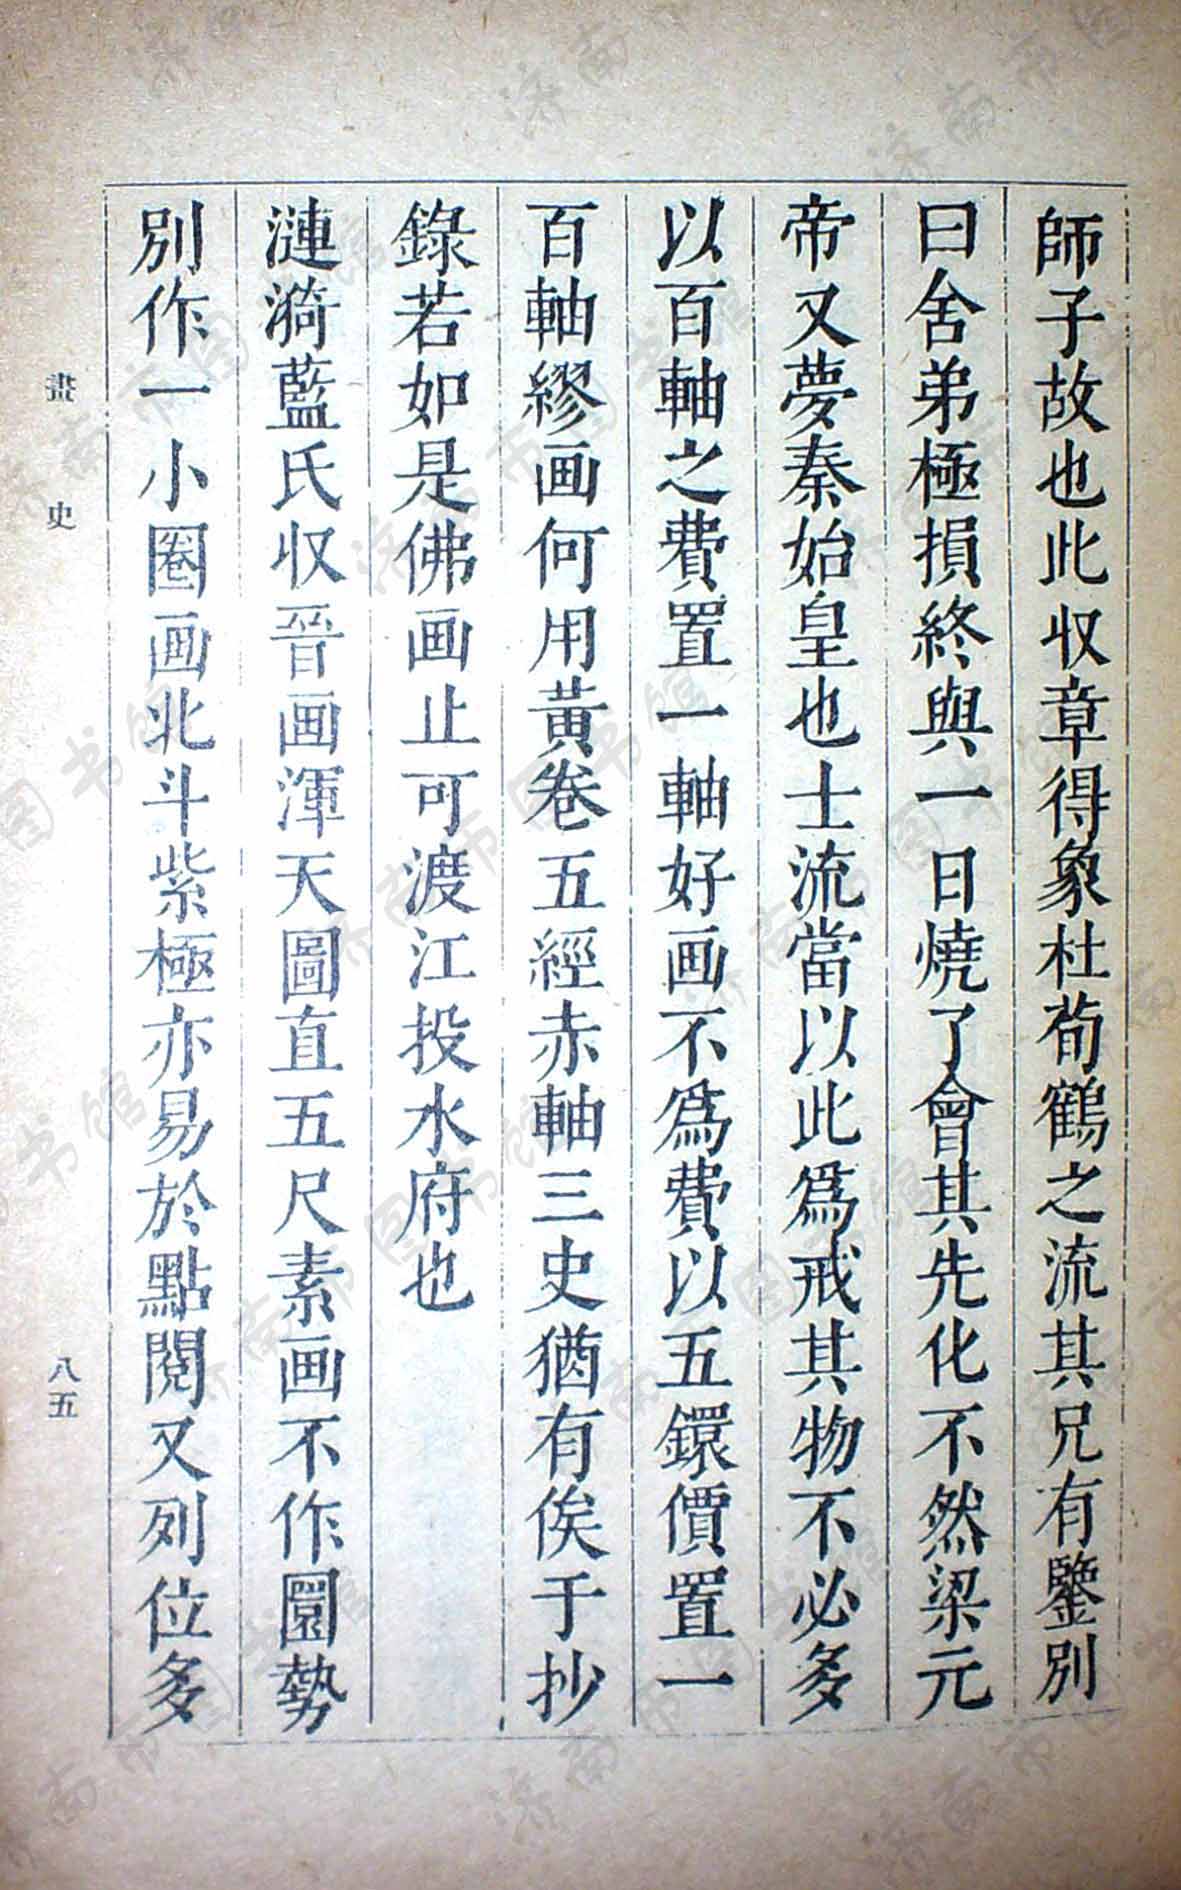 師子故也此収章得象杜荀鶴之流其兄有鑒別
曰舍弟極損終與一日燒了會其先化不然梁元
帝又夢秦始皇也士流當以此爲戒其物不必多
以百軸之費置一軸好画不爲費以五鐶價置一
百軸繆画何用黃卷五經赤軸三史猶有俟于抄
錄若如是佛画止可渡江投水府也
漣漪藍氏収晉画渾天圖直五尺素画不作圜勢
別作一小圈画北斗紫極亦易於點閱又列位多
畫史
八五
济南市图书馆